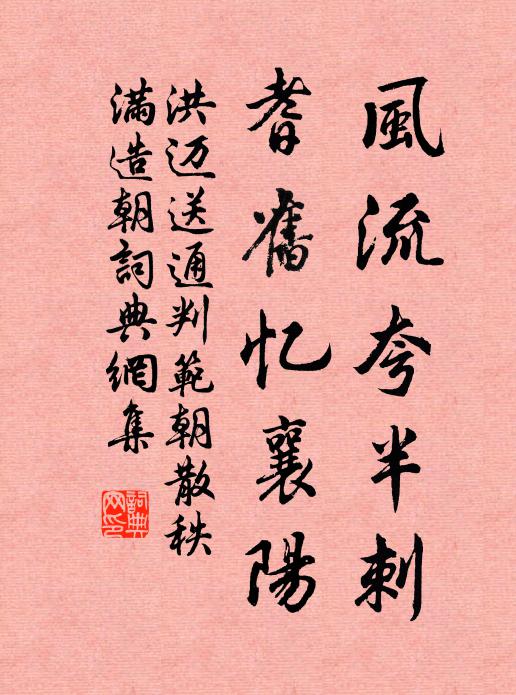 風流夸半刺
耆舊忆襄陽
洪迈送通判範朝散秩
滿造朝詞典網集
詞典网印